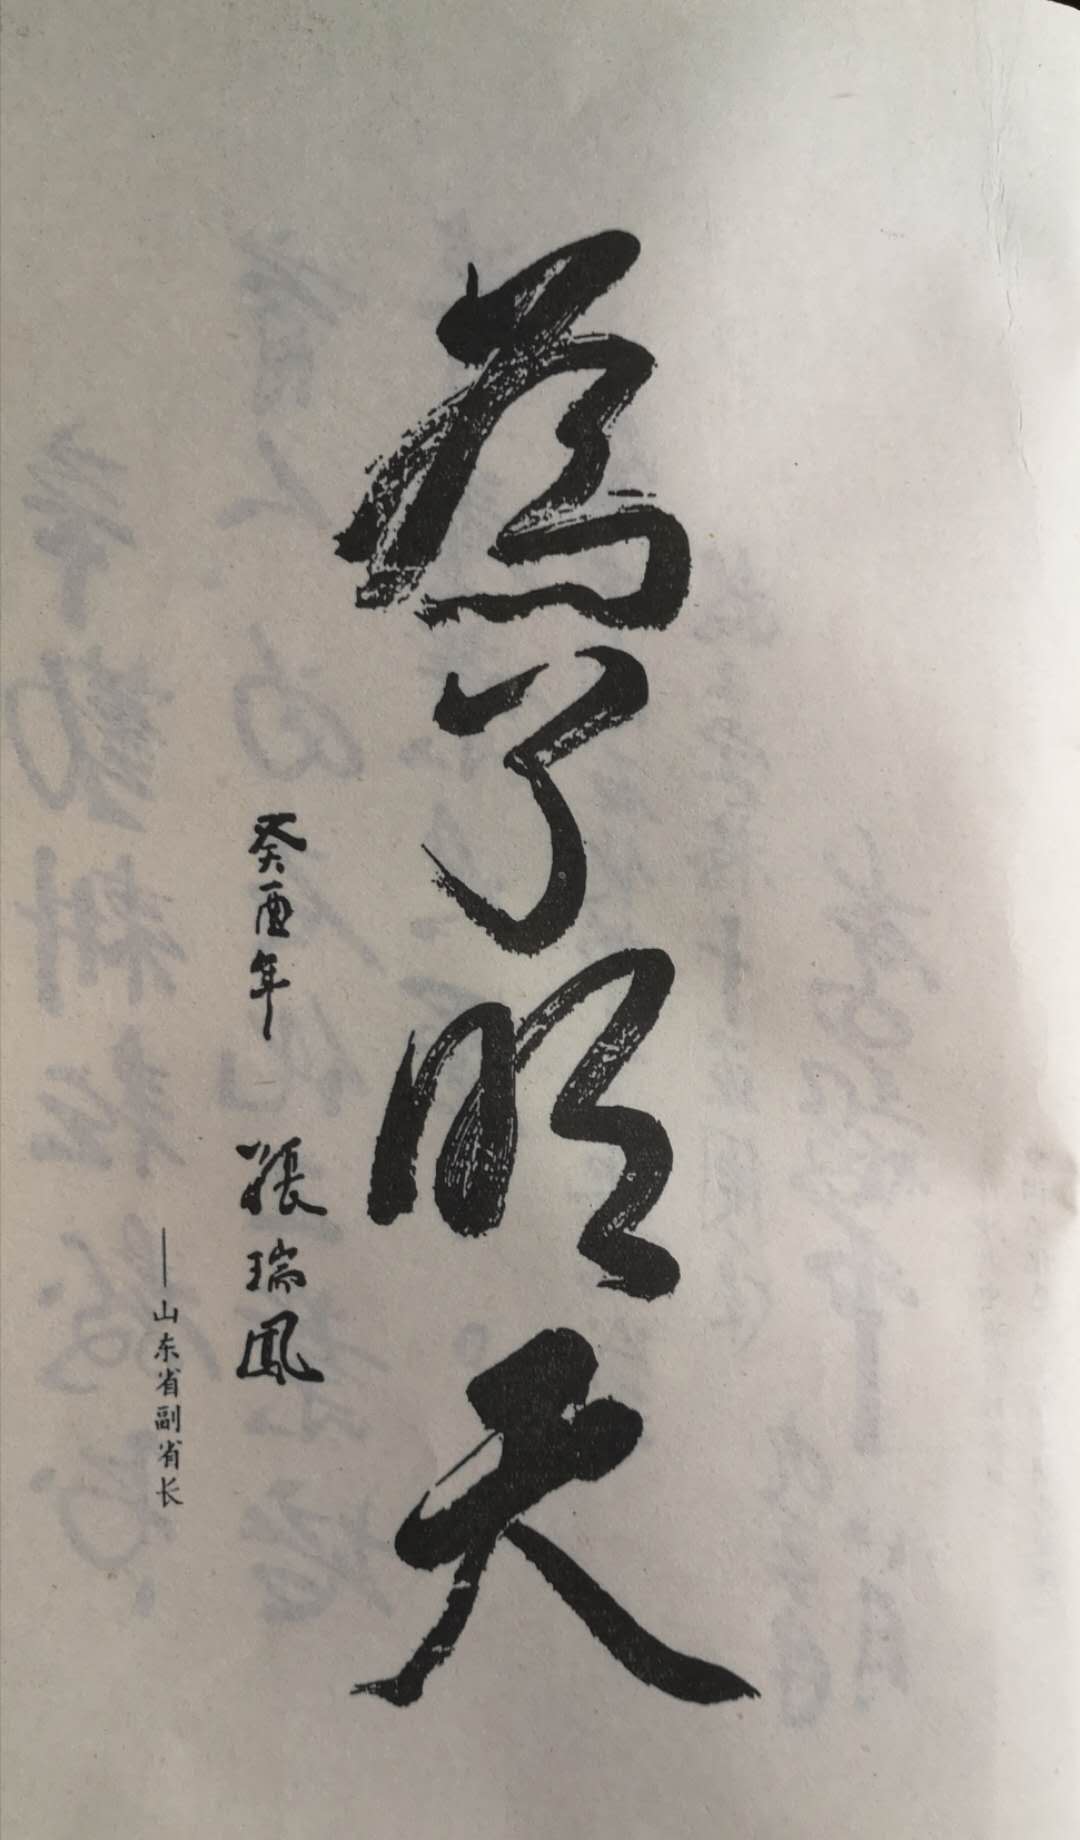 为了明天
癸酉年 张瑞凤
——山东省副省长